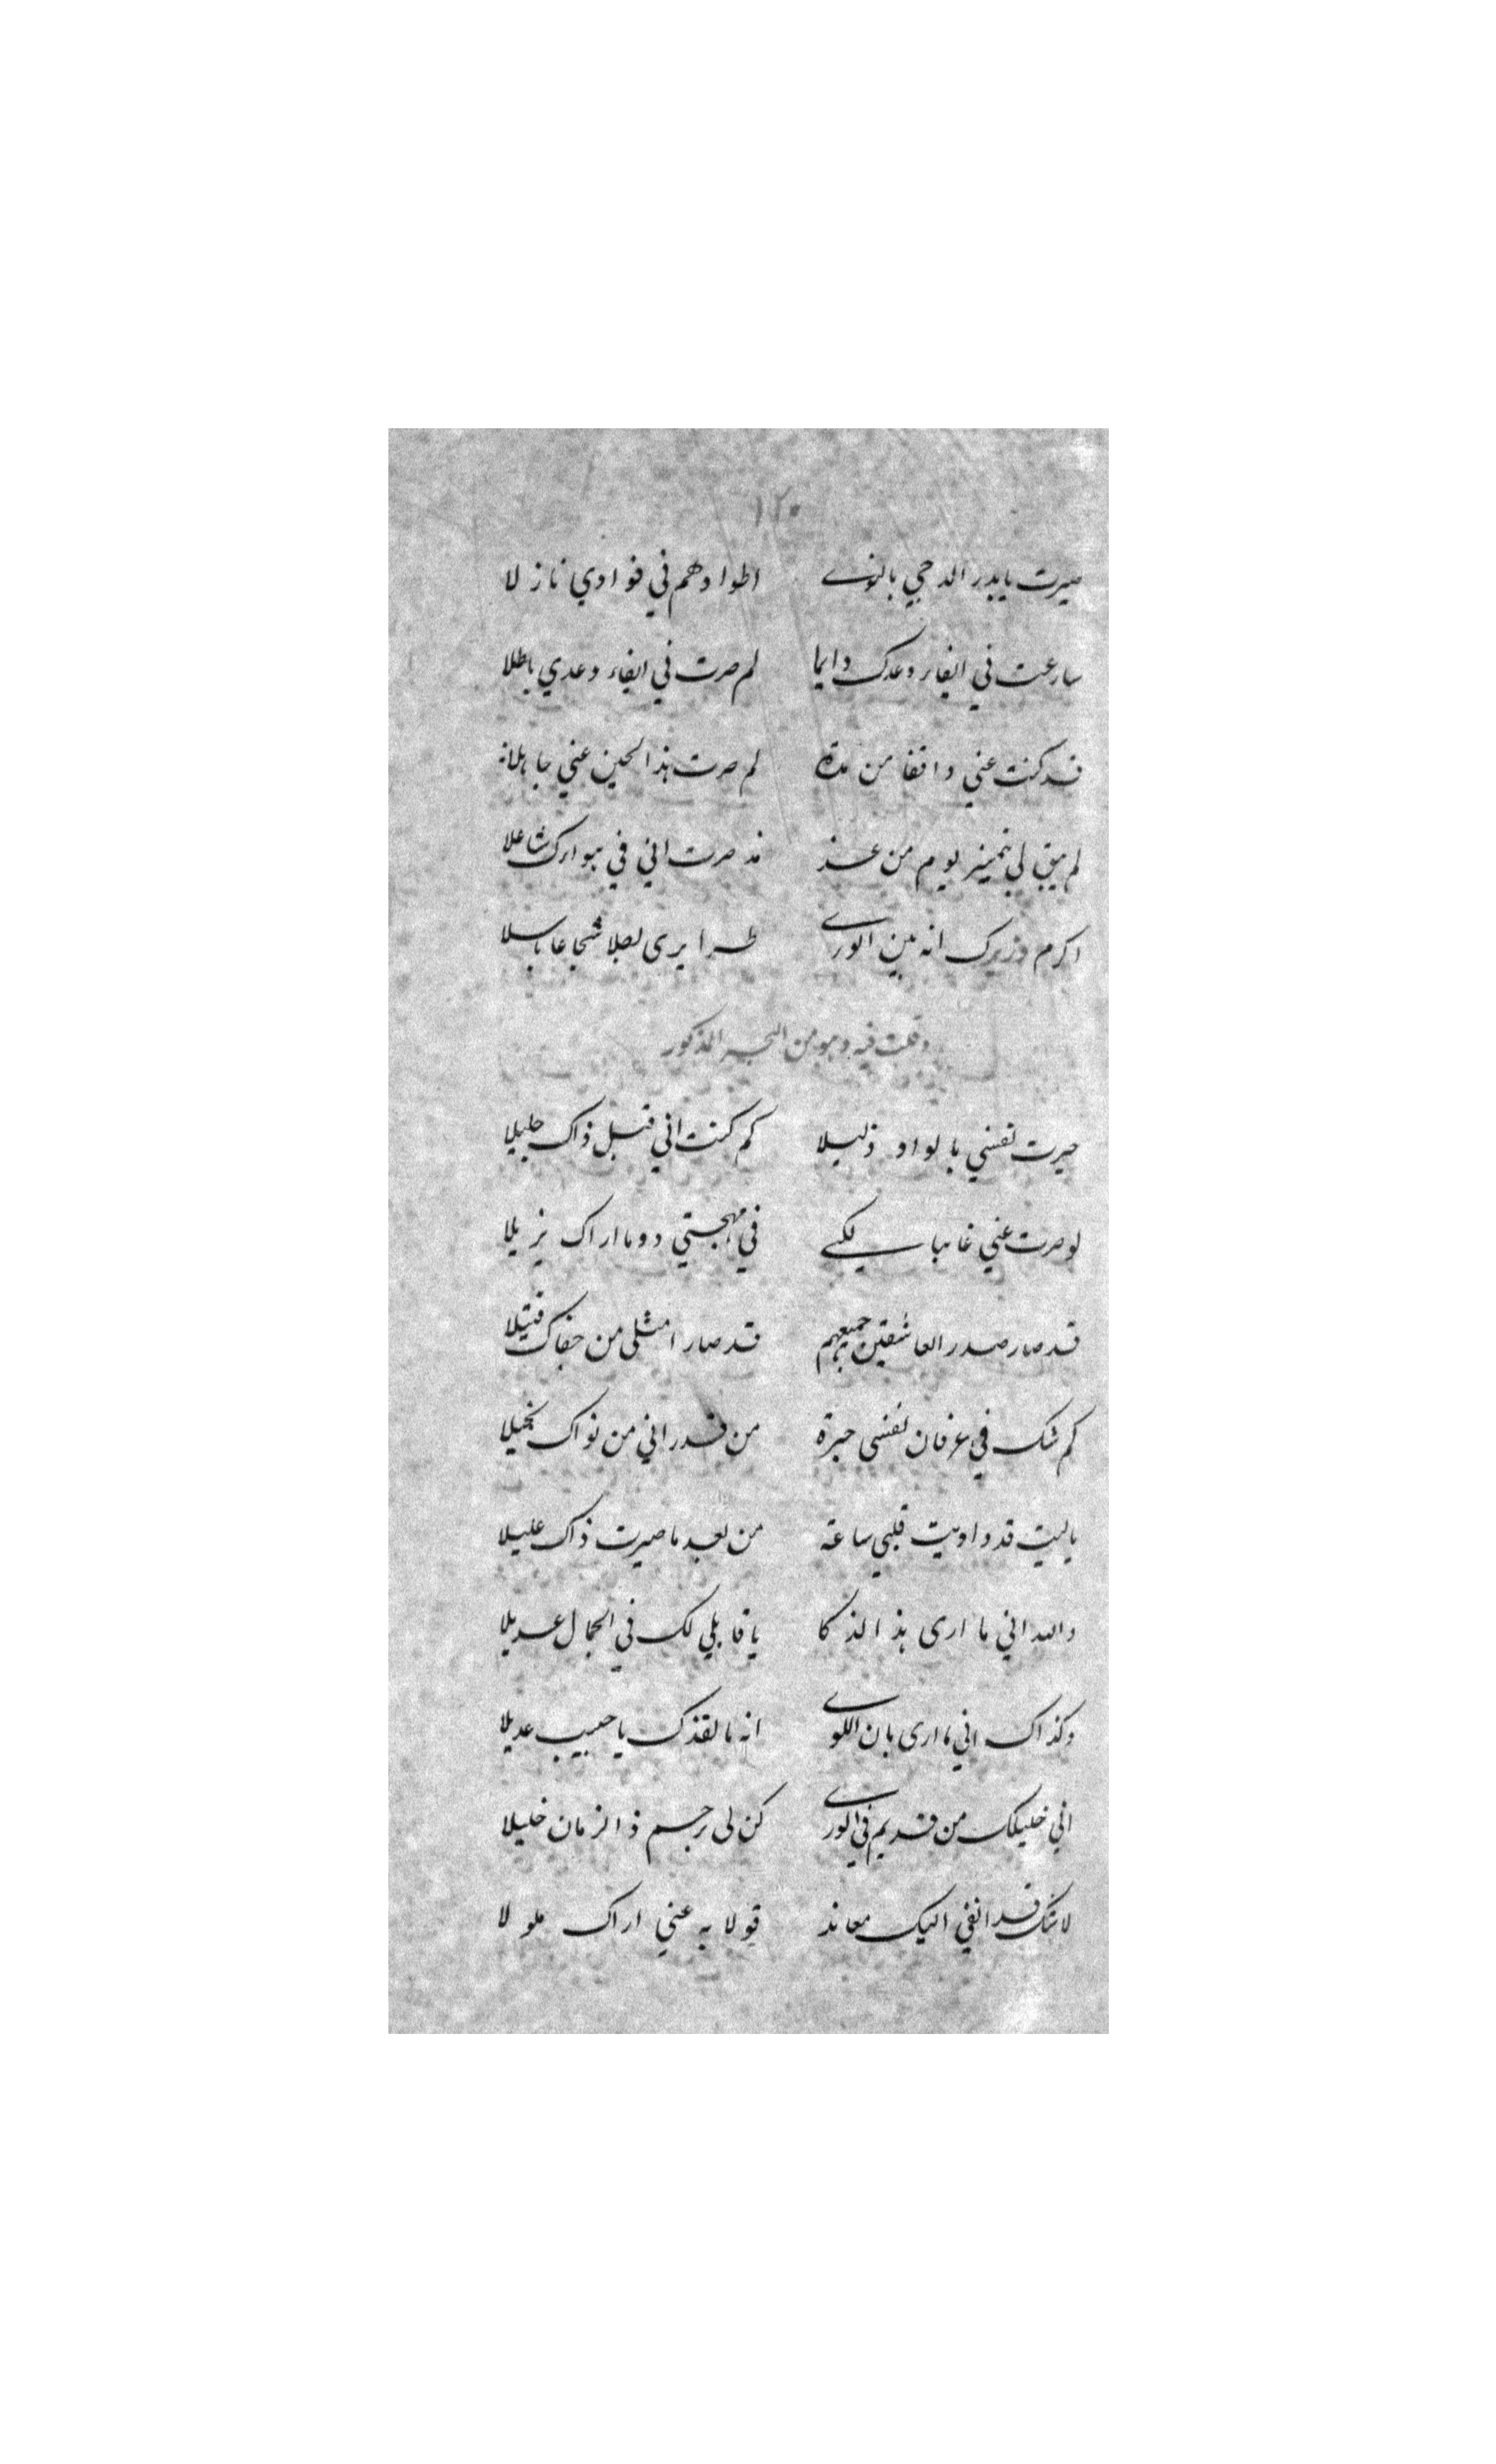 ١٢٠
صيرت يا بدر الدجي بالنوے اطوادهم في فوادي نازلا
سارعت في ايفاء وعدك دايما لم صرت في ايفاء وعدي باطلا
قد كنت عني واقفا من مدة لم صرت هذا الحين عني جاهلا
لم يبق لي تمييز يوم من غد مذ صرت اني في هوارك شاعلا
اكرم وزيرك انه بين الورے طرا يرى بطلا شجاعا باسلا
وقلت فيه وهو من البحر المذكور
صيرت نفسي بالوداد ذليلا كم كنت اني قبل ذاك جليلا
لو صرت عني غايبا لكے في مهجتي دوما اراك نزيلا
قد صار صدر العاشقين جميعهم قد صار امثلى من جفاك قتيلا
كم شك في عرفان نفسى حيرة من قد راني من نواك نحيلا
يا ليت قد داويت قلبي ساعة من بعد ما صيرت ذاك عليلا
والله اني ما ارى هذا الذكا يا قابلي لك في الجمال عديلا
وكذاك اني ما ارى بان اللوے انه ما لقدك يا حبيب عديلا
اني خليلك من قديم في الورے كن لى برحم ذا الزمان خليلا
لا شك قد انفي اليك معاند قولا به عني اراك ملولا